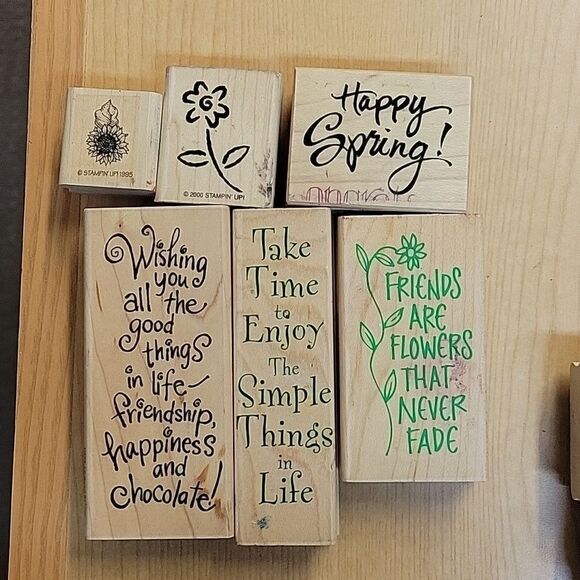 © STAMPIN' UP! 1995
© 2000 STAMPIN' UP!
Happy
Spring!
Wishing
you
all the
good
things
in life—
friendship,
happiness
and
chocolate!
Take
Time
to
Enjoy
The
Simple
Things
in
Life
FRIENDS
ARE
FLOWERS
THAT
NEVER
FADE